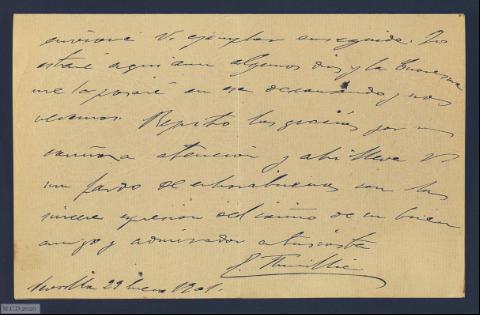 enviaré V. ejemplar enseguida. Yo
estaré aqui aun algunos dias y la Cuaresma
me la pasaré en esa descansando y nos
veremos. Repito las gracias por su
cariñosa atencion y ahi lleva V.
un fardo de enhorabuenas con la
sincera expresion del cariño de su buen
amigo y admirador afectisimo
Sevilla 29 Enero 1901.
M.C.D 2020